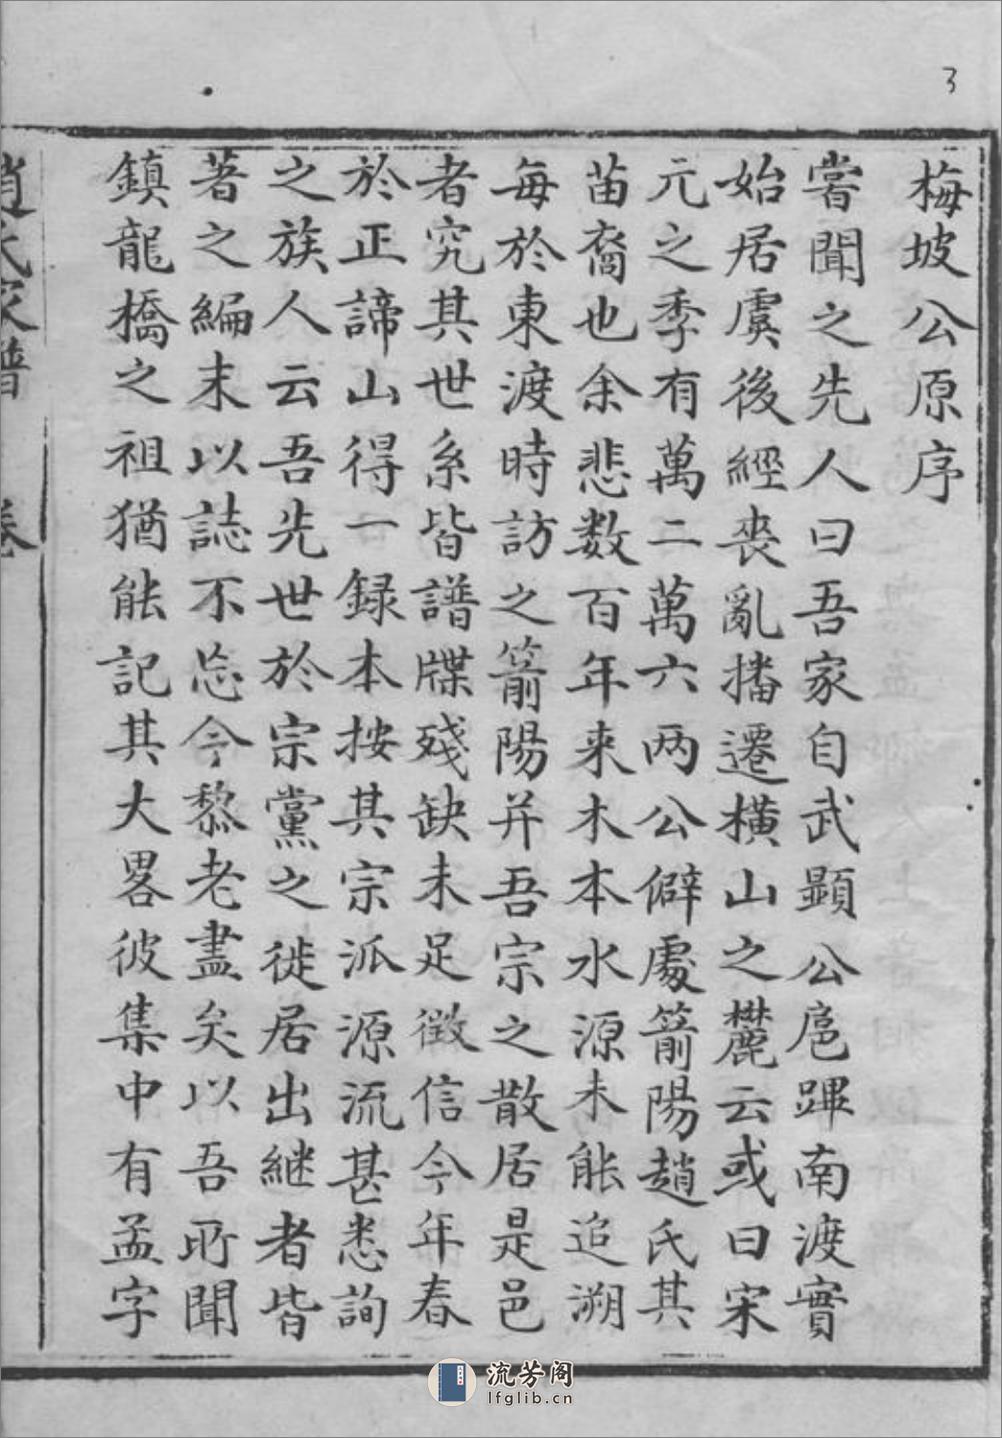 3
梅坡公原序
嘗聞之先人曰吾家自武顯公扈蹕南渡實
始居虞後經喪亂播遷橫山之麓云或曰宋
元之季有萬二萬六两公僻處箭陽趙氏其
苗裔也余悲数百年来木本水源未能追溯
每於東渡時訪之箭陽并吾宗之散居是邑
者究其世系皆譜牒殘缺未足徵信今年春
於正諦山得一録本按其宗派源流甚悉詢
之族人云吾先世於宗黨之徙居出継者皆
著之編末以誌不忘今黎老盡矣以吾所聞
鎮龍橋之祖猶能記其大畧彼集中有孟字
趙氏家譜 卷
流芳阁
lfglib.cn